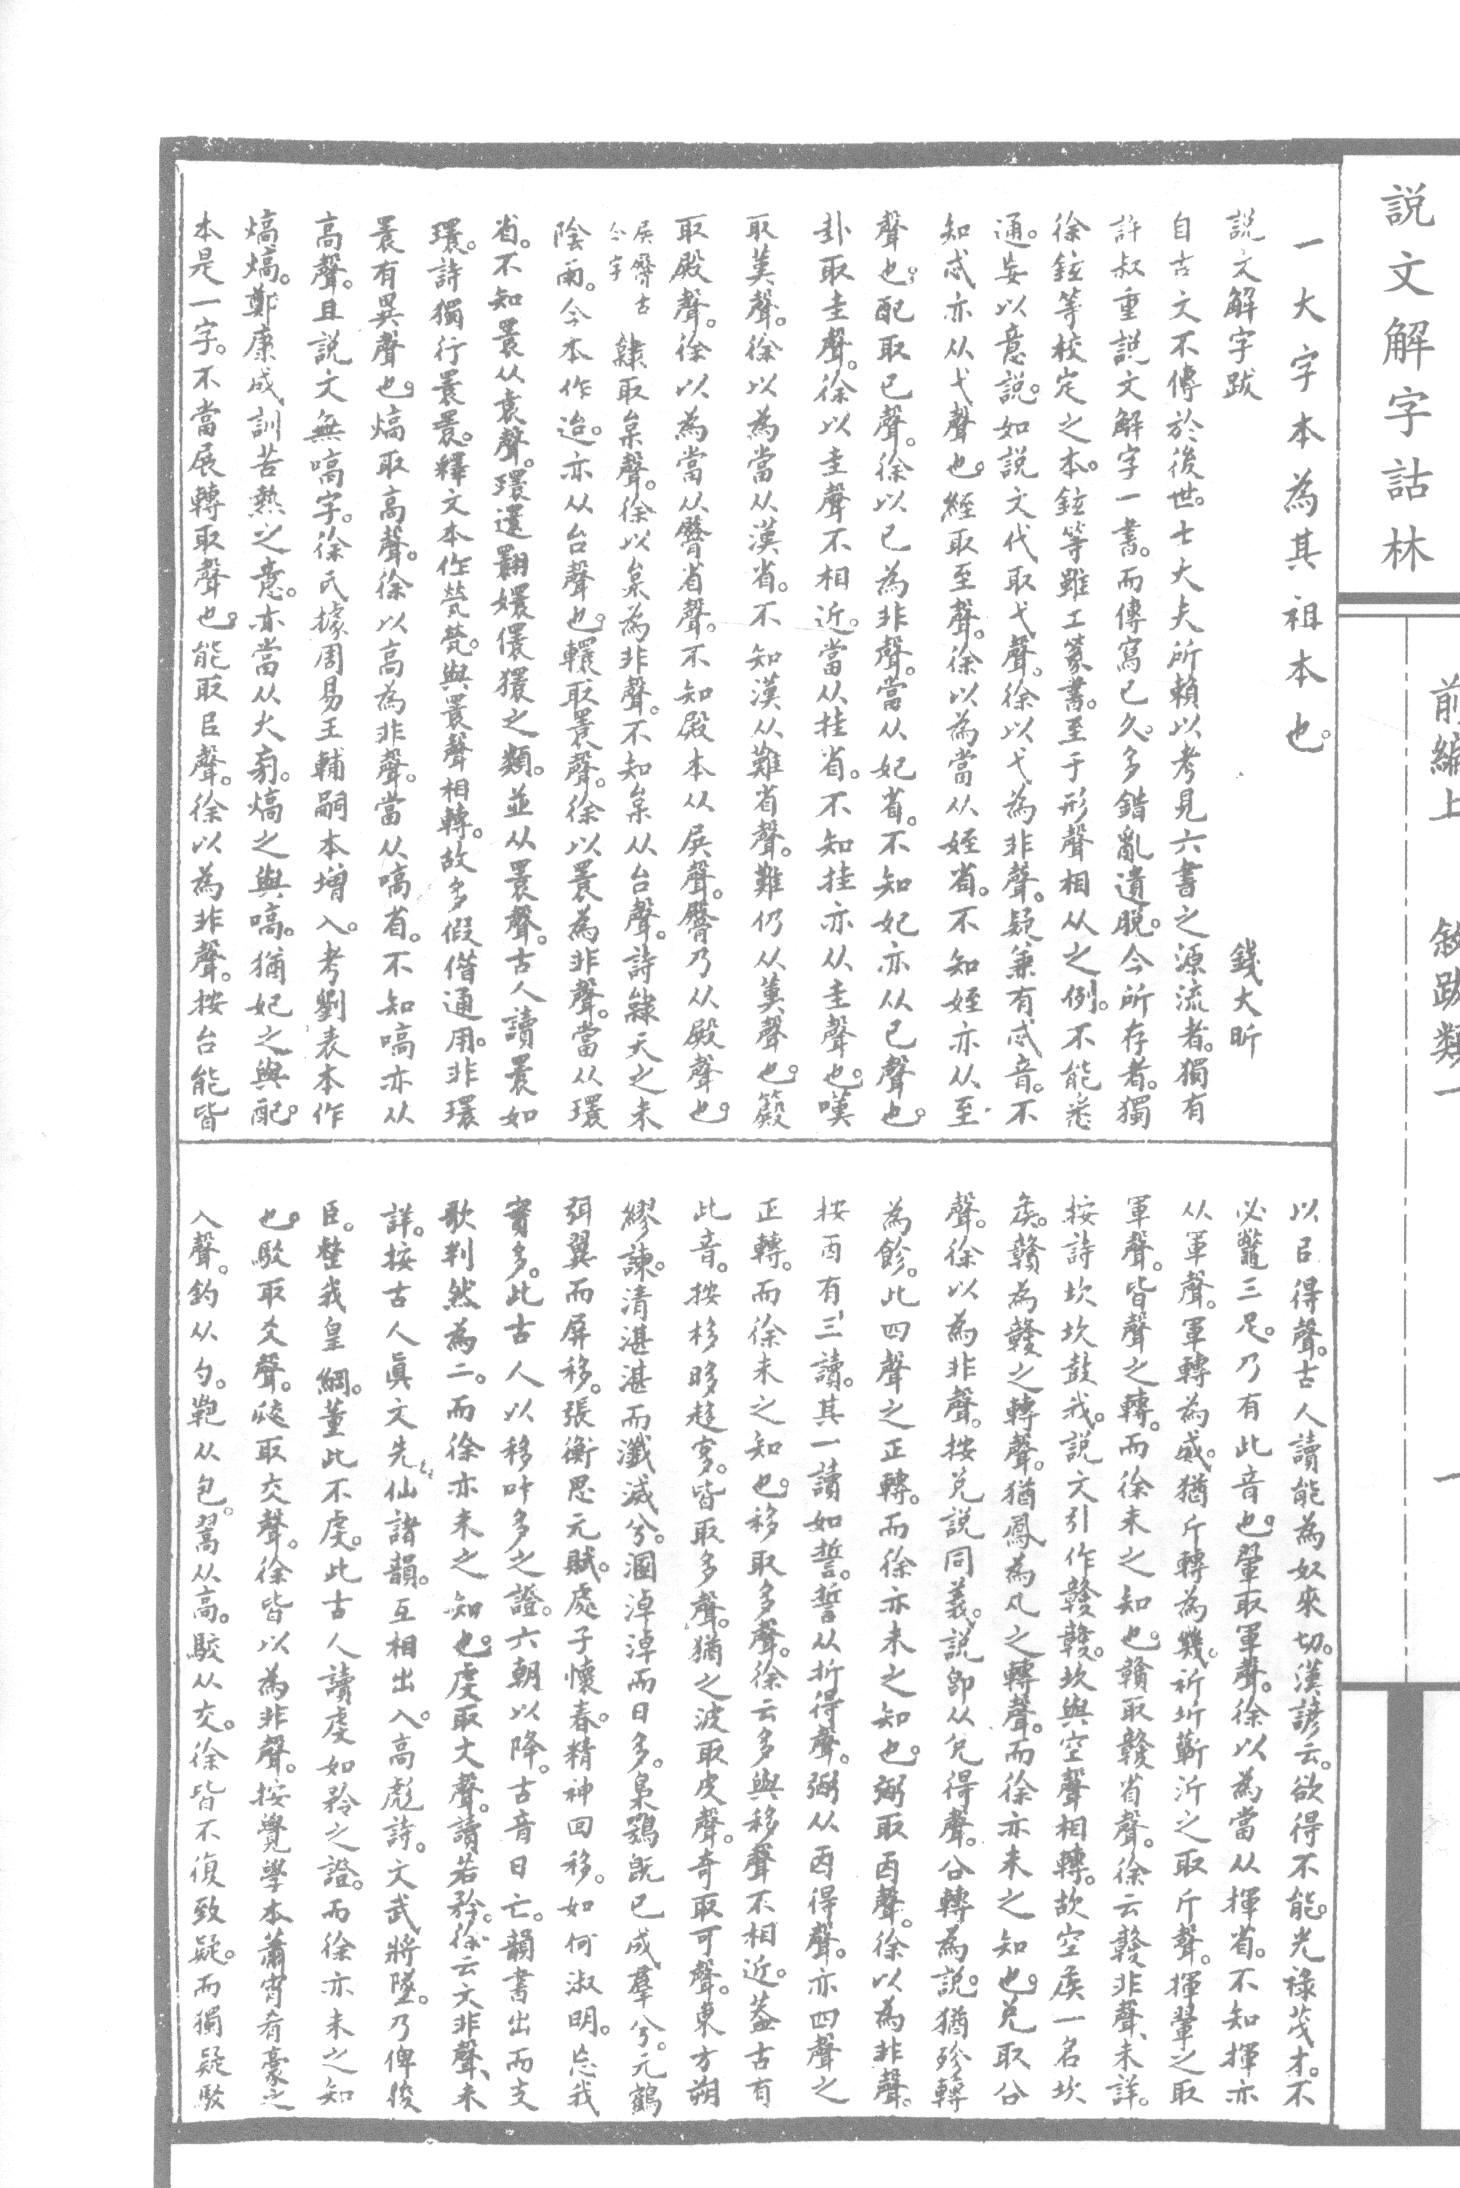 説文解字詁林
前編上　敘跋類一
一
一大字本為其祖本也。
說文解字跋　錢大昕
自古文不傳於後世。士大夫所賴以考見六書之源流者。獨有
許叔重說文解字一書。而傳寫已久。多錯亂遺脫。今所存者。獨
徐鉉等校定之本。鉉等雖工篆書。至于形聲相从之例。不能悉
通。妄以意說。如說文代取弋聲。徐以弋為非聲。疑兼有忒音。不
知忒亦从弋聲也。經取至聲。徐以為當从姪省。不知姪亦从至
聲也。配取己聲。徐以己為非聲。當从妃省。不知妃亦从己聲也。
卦取圭聲。徐以圭聲不相近。當从挂省。不知挂亦从圭聲也。嘆
取堇聲。徐以為當从漢省。不知漢从難省聲。難仍从堇聲也。簸
取殿聲。徐以為當从臀省聲。不知殿本从𡱂聲。臀乃从殿聲也。
𡱂臀古今字　隸取枲聲。徐以枲為非聲。不知枲从台聲。詩隸天之未
陰雨。今本作迨。亦从台聲也。轘取瞏聲。徐以瞏為非聲。當从環
省。不知瞏从袁聲。環還翾嬛儇獧之類。並从瞏聲。古人讀瞏如
環。詩獨行瞏瞏。釋文本作煢煢。與瞏聲相轉。故多假借通用。非環
瞏有異聲也。熇取高聲。徐以高為非聲。當从嗃省。不知嗃亦从
高聲。且說文無嗃字。徐氏據周易王輔嗣本增入。考劉表本作
熇熇。鄭康成訓苦熱之意。亦當从火旁。熇之與嗃。猶妃之與配。
本是一字。不當展轉取聲也。能取㠯聲。徐以為非聲。按台能皆
以㠯得聲。古人讀能為奴來切。漢諺云。欲得不能。光祿茂才。不
必鼈三足。乃有此音也。翬取軍聲。徐以為當从揮省。不知揮亦
从軍聲。軍轉為威。猶斤轉為幾。祈圻蘄沂之取斤聲。揮翬之取
軍聲。皆聲之轉。而徐未之知也。贛取竷省聲。徐云竷非聲、未詳。
按詩坎坎鼓我。說文引作竷竷。坎與空聲相轉。故空矦一名坎
矦。贛為竷之轉聲。猶鳳為凡之轉聲。而徐亦未之知也。兌取㕣
聲。徐以為非聲。按兌說同義。說即从兌得聲。㕣轉為說。猶殄轉
為餮。此四聲之正轉。而徐亦未之知也。弼取㐁聲。徐以為非聲。
按㐁有三讀。其一讀如誓。誓从折得聲。弼从㐁得聲。亦四聲之
正轉。而徐未之知也。移取多聲。徐云多與移聲不相近。葢古有
此音。按栘眵趍㝖。皆取多聲。猶之波取皮聲。奇取可聲。東方朔
繆諫。清湛湛而瀸滅兮。溷淖淖而日多。梟鴞既已成羣兮。元鶴
弭翼而屏移。張衡思元賦。處子懷春。精神回移。如何淑明。忘我
實多。此古人以移叶多之證。六朝以降。古音日亡。韻書出而支
歌判然為二。而徐亦未之知也。虔取文聲。讀若矜。徐云文非聲、未
詳。按古人真文先仙諸韻。互相出入。高彪詩。文武將墜。乃俾俊
臣。整我皇綱。董此不虔。此古人讀虔如矜之證。而徐亦未之知
也。駁取爻聲。㲉取交聲。徐皆以為非聲。按覺學本蕭宵肴豪之
入聲。釣从勺。鞄从包。翯从高。駮从交。徐皆不復致疑。而獨疑駁